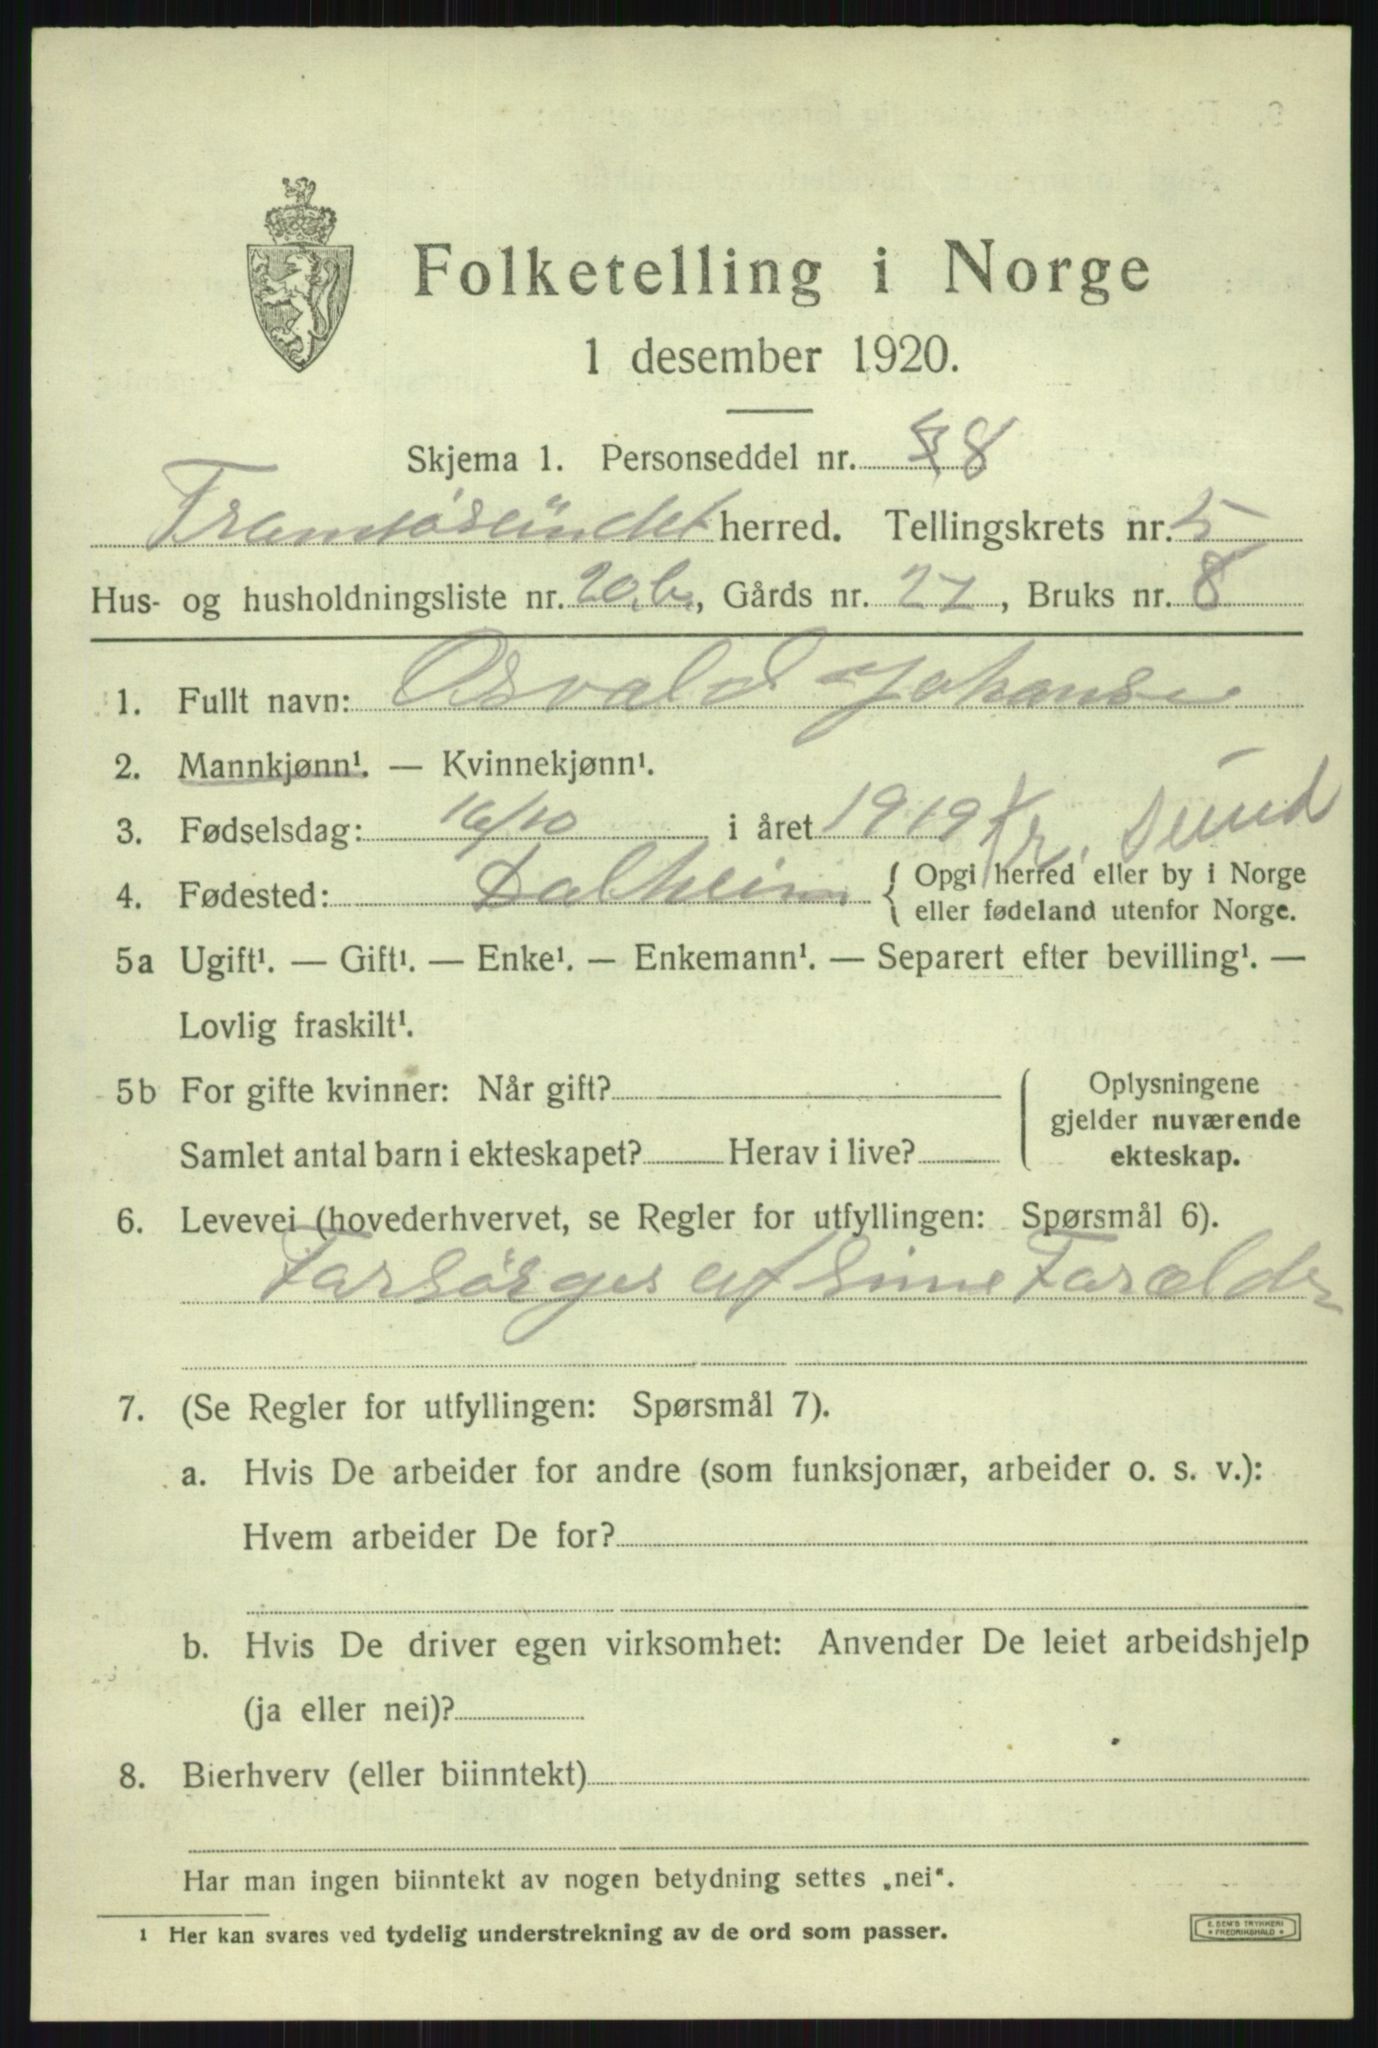 Folketelling i Norge
1 desember 1920.
Skjema 1. Personseddel nr. 8
Tromsøsundet herred. Tellingskrets nr. 5
Hus- og husholdningsliste nr. 20.b., Gårds nr. 27, Bruks nr. 8
1. Fullt navn: Osvald Johanse
2. Mannkjønn¹. — Kvinnekjønn¹.
3. Fødselsdag: 16/10 i året 1919 Kr. sund
4. Fødested: Dalheim { Opgi herred eller by i Norge
eller fødeland utenfor Norge.
5a Ugift¹. — Gift¹. — Enke¹. — Enkemann¹. — Separert efter bevilling¹. —
Lovlig fraskilt¹.
5b For gifte kvinner: Når gift?
Samlet antal barn i ekteskapet? Herav i live?
Oplysningene
gjelder nuværende
ekteskap.
6. Levevei (hovederhvervet, se Regler for utfyllingen: Spørsmål 6).
Forsørges af sine Forælder
7. (Se Regler for utfyllingen: Spørsmål 7).
a. Hvis De arbeider for andre (som funksjonær, arbeider o. s. v.):
Hvem arbeider De for?
b. Hvis De driver egen virksomhet: Anvender De leiet arbeidshjelp
(ja eller nei)?
8. Bierhverv (eller biinntekt)
Har man ingen biinntekt av nogen betydning settes „nei“.
¹ Her kan svares ved tydelig understrekning av de ord som passer.
E. SEM'S TRYKKERI
FREDRIKSHALD